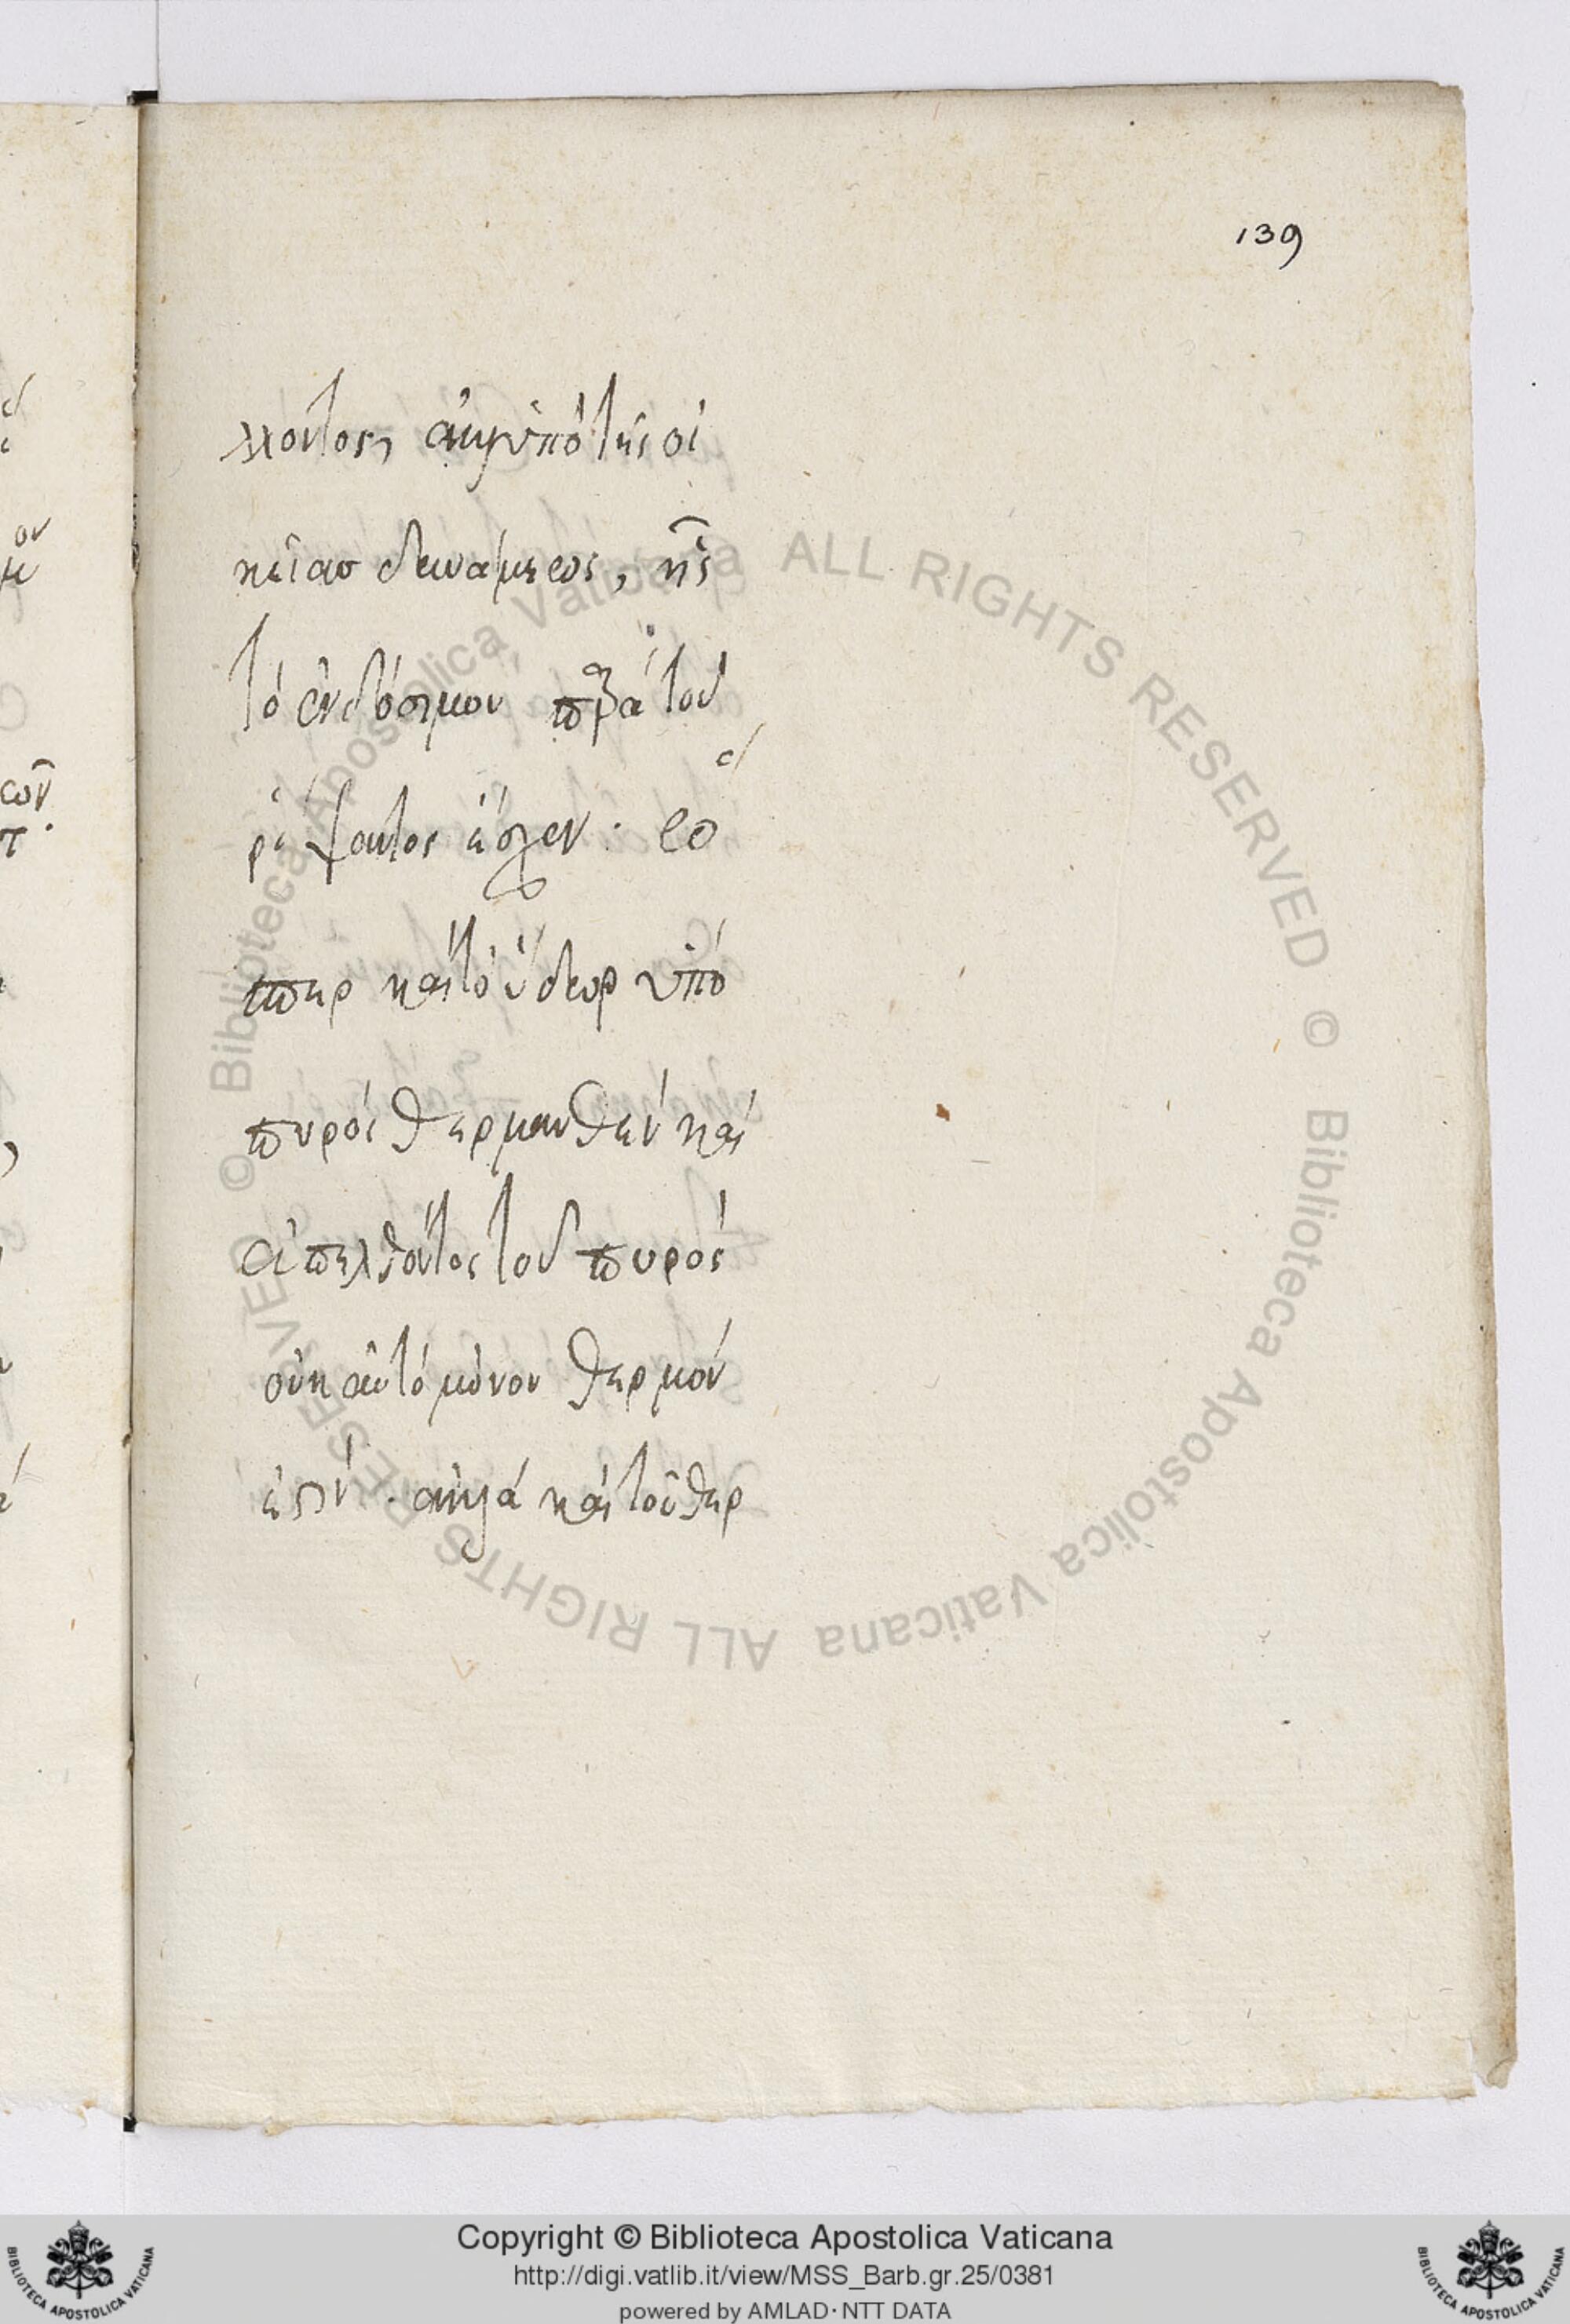 139
λλοντος, ἀλλ' ὑπὸ τῆς οἰ
κείας δυνάμεως, ἧς
τὸ ἐνδόσιμον παρὰ τοῦ
ῥίψαντος ἔσχεν. ὥσ
περ καὶ τὸ ὕδωρ ὑπὸ
πυρὸς θερμανθὲν καὶ
ἀπελθόντος τοῦ πυρὸς
οὐκ αὐτὸ μόνον θερμόν
ἐστιν. ἀλλὰ καὶ τοῦ θερ
© Biblioteca Apostolica Vaticana ALL RIGHTS RESERVED © Biblioteca Apostolica Vaticana ALL RIGHTS RESERVED
Copyright © Biblioteca Apostolica Vaticana
http://digi.vatlib.it/view/MSS_Barb.gr.25/0381
powered by AMLAD·NTT DATA
BIBLIOTECA APOSTOLICA VATICANA
BIBLIOTECA APOSTOLICA VATICANA